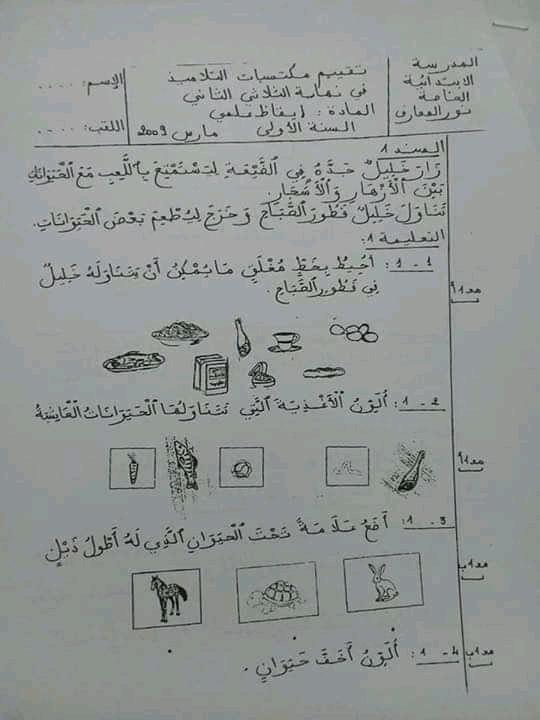 المدرسة
الابتدائية
الخاصة
نور المعارف
تقييم مكتسبات التلاميذ
في نهاية الثلاثي الثاني
المادة : إيقاظ علمي
السنة الأولى مارس 2009
الإسم: ....
اللقب: ....
السند 1
زَارَ خَلِيلٌ جَدَّهُ فِي الضَّيْعَةِ لِيَسْتَمْتِعَ بِاللَّعِبِ مَعَ الْحَيَوَانَاتِ
بَيْنَ الْأَزْهَارِ وَالْأَشْجَارِ
تَنَاوَلَ خَلِيلٌ فَطُورَ الصَّبَاحِ وَخَرَجَ لِيُطْعِمَ بَعْضَ الْحَيَوَانَاتِ.
التعليمة 1:
1 - 1 : أُحِيطُ بِخَطٍّ مُغْلَقٍ مَا يُمْكِنُ أَنْ يَتَنَاوَلَهُ خَلِيلٌ
فِي فَطُورِ الصَّبَاحِ.
مع1أ
1 - 2 : أُلَوِّنُ الْأَغْذِيَةَ الَّتِي تَتَنَاوَلُهَا الْحَيَوَانَاتُ الْعَاشِبَةُ
مع1أ
1 - 3 : أَضَعُ عَلَامَةً تَحْتَ الْحَيَوَانِ الَّذِي لَهُ أَطْوَلُ ذَيْلٍ
مع1ب
1 - 4 : أُلَوِّنُ أَخَفَّ حَيَوَانٍ.
مع1ب